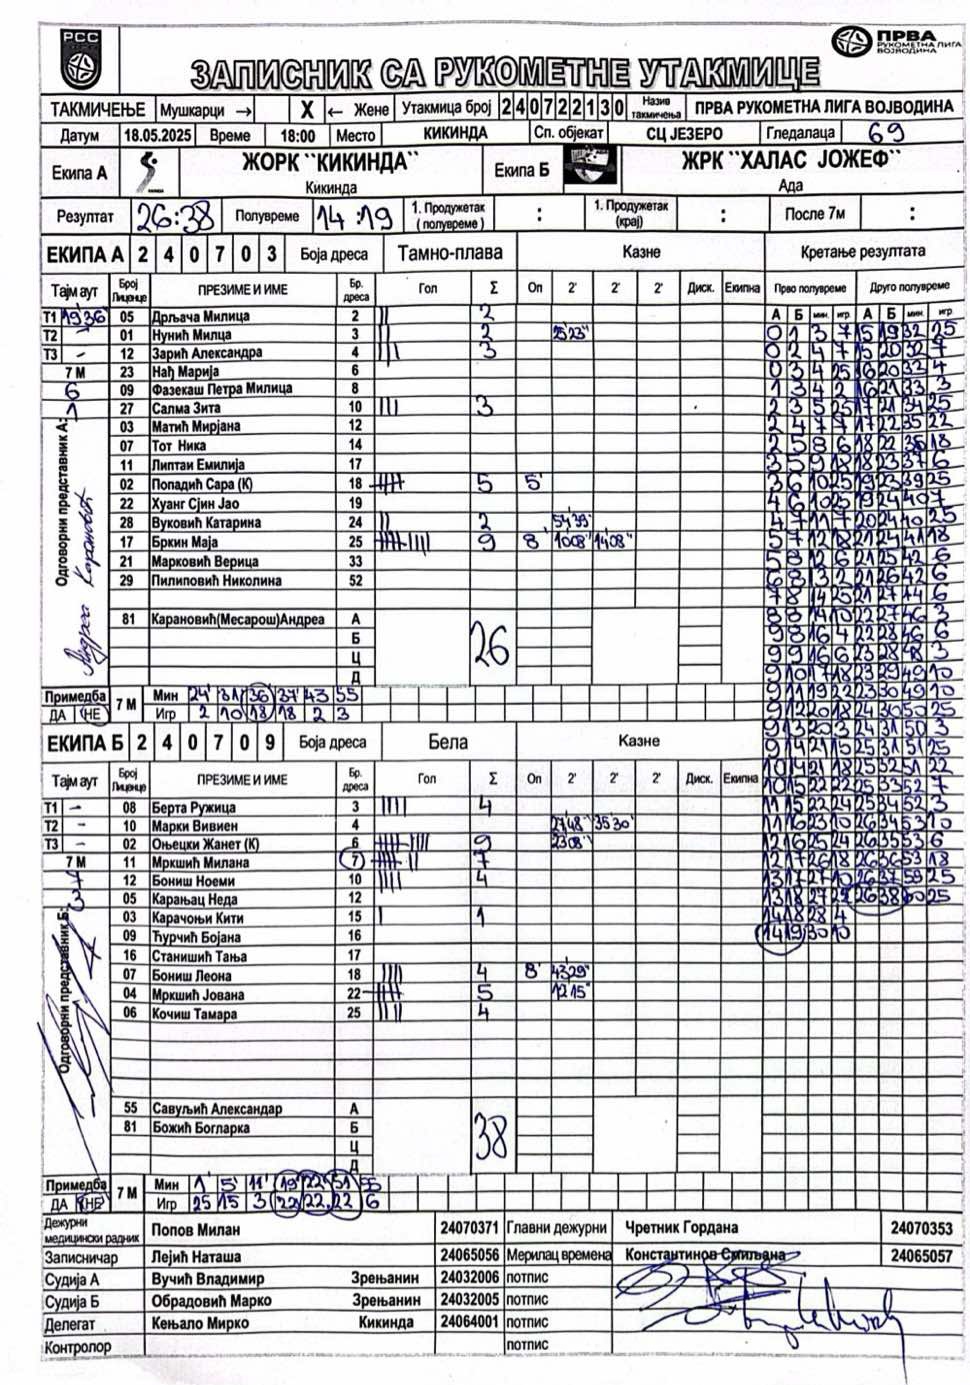 РСС
ПРВА
РУКОМЕТНА ЛИГА
ВОЈВОДИНА
ЗАПИСНИК СА РУКОМЕТНЕ УТАКМИЦЕ
ТАКМИЧЕЊЕ Мушкарци → X ← Жене Утакмица број 240722130 Назив такмичења ПРВА РУКОМЕТНА ЛИГА ВОЈВОДИНА
Датум 18.05.2025 Време 18:00 Место КИКИНДА Сп. објекат СЦ ЈЕЗЕРО Гледалаца 69
Екипа А ЖОРК "КИКИНДА" Кикинда Екипа Б ЖРК "ХАЛАС ЈОЖЕФ" Ада
Резултат 26:38 Полувреме 14:19 1. Продужетак (полувреме) : 1. Продужетак (крај) : После 7м :
ЕКИПА А 2 4 0 7 0 3 Боја дреса Тамно-плава Казне Кретање резултата
Тајм аут Број Лиценце ПРЕЗИМЕ И ИМЕ Бр. дреса Гол Σ Оп 2' 2' 2' Диск. Екипна Прво полувреме Друго полувреме
А Б мин. игр. А Б мин. игр.
Т1 19'36" 05 Дрљача Милица 2 || 2
Т2 - 01 Нунић Милца 3 || 2 25'23"
Т3 - 12 Зарић Александра 4 ||| 3
7 М 23 Нађ Марија 6
6 09 Фазекаш Петра Милица 8
27 Салма Зита 10 ||| 3
03 Матић Мирјана 12
07 Тот Ника 14
11 Липтаи Емилија 17
02 Попадић Сара (К) 18 5 5'
22 Хуанг Сјин Јао 19
28 Вуковић Катарина 24 || 2 54'39"
17 Бркин Маја 25 9 8' 10'08" 14'08"
21 Марковић Верица 33
29 Пилиповић Николина 52
81 Карановић(Месарош)Андреа А
Б
Ц
Д
26
Одговорни представник А:
Примедба ДА НЕ 7 М
Мин 24' 31' 36' 37' 43 55
Игр 2 10 18 18 2 3
ЕКИПА Б 2 4 0 7 0 9 Боја дреса Бела Казне
Тајм аут Број Лиценце ПРЕЗИМЕ И ИМЕ Бр. дреса Гол Σ Оп 2' 2' 2' Диск. Екипна
Т1 - 08 Берта Ружица 3 |||| 4
Т2 - 10 Марки Вивиен 4 27'48" 35'30"
Т3 - 02 Оњецки Жанет (К) 6 9 23'08"
7 М 11 Мркшић Милана 7 7
12 Бониш Ноеми 10 |||| 4
05 Карањац Неда 12
03 Карачоњи Кити 15 | 1
09 Ћурчић Бојана 16
16 Станишић Тања 17
07 Бониш Леона 18 |||| 4 8' 43'29"
04 Мркшић Јована 22 5 12'15"
06 Кочиш Тамара 25 |||| 4
55 Савуљић Александар А
81 Божић Богларка Б
Ц
Д
38
Одговорни представник Б:
Примедба ДА НЕ 7 М
Мин 1' 5' 11' 19' 22' 51 55
Игр 25 15 3 22 22 22 6
0 1 3 7 15 19 32 25
0 2 4 7 15 20 32 7
0 3 4 25 16 20 33 4
1 3 4 2 16 21 33 3
2 3 5 25 17 21 34 25
2 4 7 7 17 22 35 22
2 5 8 6 18 22 36 18
3 5 9 18 18 23 37 6
3 6 10 25 19 23 39 25
4 6 10 25 19 24 40 7
4 7 11 7 20 24 40 25
5 7 12 18 21 24 41 18
5 8 12 6 21 25 42 6
6 8 13 2 21 26 42 6
7 8 14 25 21 27 44 6
8 8 14 10 22 27 46 3
9 8 16 4 22 28 46 6
9 9 16 6 23 28 48 3
9 10 17 18 23 29 49 10
9 11 19 22 23 30 49 10
9 12 20 18 24 30 50 25
9 13 20 3 24 31 50 3
9 14 21 15 25 31 51 25
10 14 21 18 25 32 51 22
10 15 22 22 25 33 52 7
11 15 22 24 25 34 52 3
11 16 23 10 26 34 53 10
12 16 25 24 26 35 53 6
12 17 26 18 26 36 53 18
13 17 27 10 26 37 59 25
13 18 27 22 26 38 60 25
14 18 28 4
14 19 30 10
Дежурни медицински радник Попов Милан 24070371 Главни дежурни Чретник Гордана 24070353
Записничар Лејић Наташа 24065056 Мерилац времена Константинов Смиљана 24065057
Судија А Вучић Владимир Зрењанин 24032006 потпис
Судија Б Обрадовић Марко Зрењанин 24032005 потпис
Делегат Кењало Мирко Кикинда 24064001 потпис
Контролор потпис